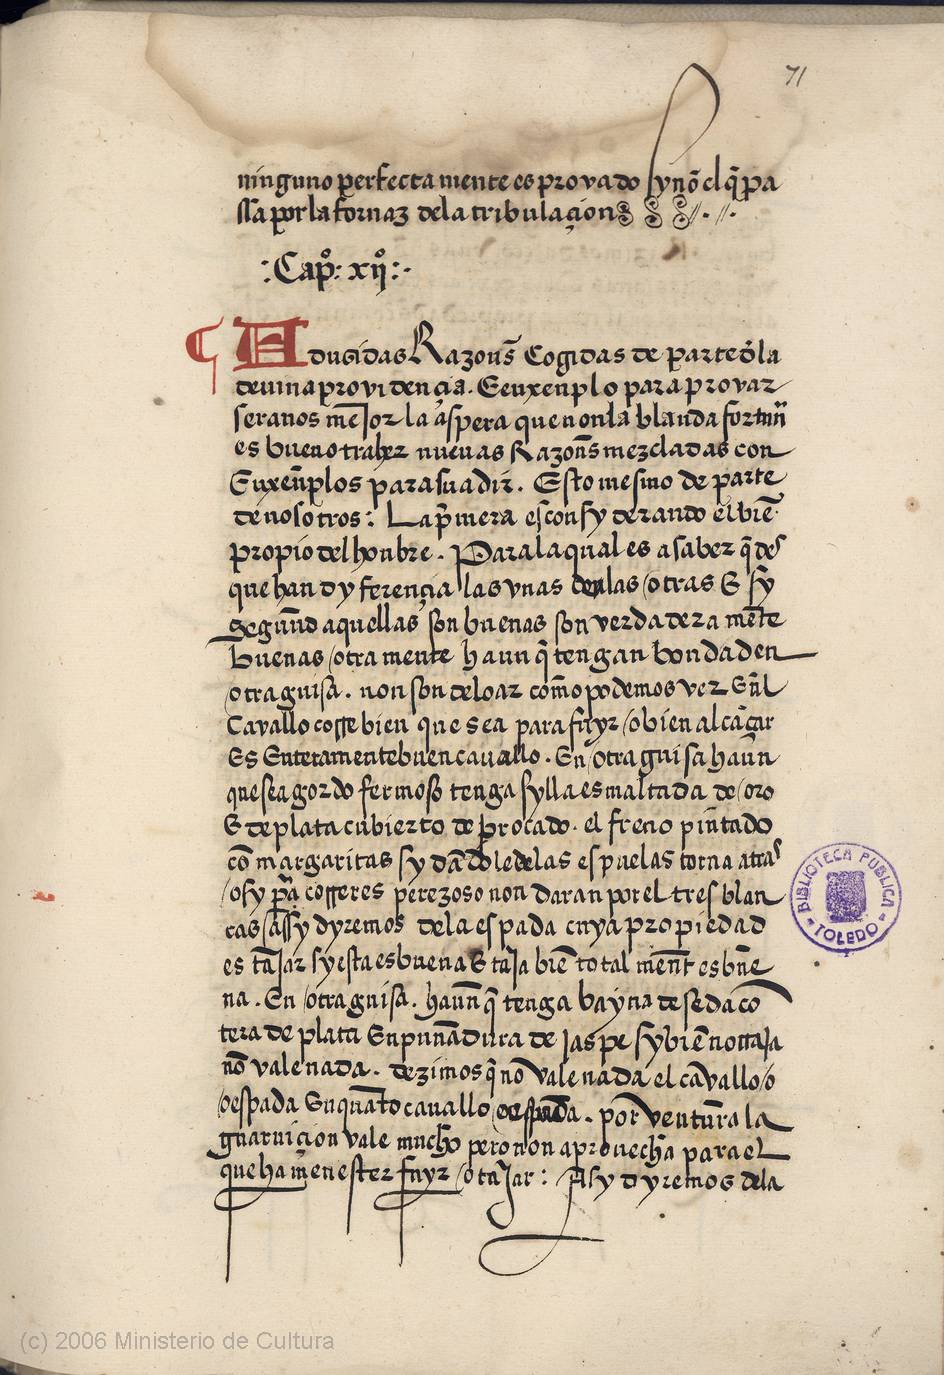 71
ninguno perfecta mente es provado synõ el q̃ pa
ssa por la fornaz de la tribulaçion
:Capº: xijº:
¶ Aduzidas Razonẽs Cogidas de parte de la
devina providençia. E euxenplo para provar
ser a nos meJor la aspera que non la blanda fortun̄
es bueno traher nuevas Razonẽs mezcladas con
Euxenplos para suadir. Esto mesmo de parte
de nosotros: La p̃mera es consyderando el biẽ
propio del honbre. Para la qual es a saber q̃ des
que han dyferençia las unas de las /otras E sy
Segund aquellas son buenas son verdadera mẽte
buenas /otra mente haun q̃ tengan bondad en
/otra guisa. non son de loar como podemos ver Eñl
Cavallo cosse bien que sea para fuyr /o bien alcançar
Es Enteramente buen cavallo. En /otra guisa haun
que sea gordo fermoso tenga sylla esmaltada de /oro
E de plata cubierto de brocado. el freno pintado
cõ margaritas sy dãdole de las espuelas torna atras
/o sy p̃a cosseres perezoso non daran por el tres blan
cas /assy dyremos de la espada cuya propiedad
es tãJar sy esta es buena E taJa biẽ total mẽnt es bue
na. En /otra guisa. haun q̃ tenga bayna de seda cõ
tera de plata Enpuñadura de Jaspe sy biẽ no taJa
nõ vale nada. dezimos q̃ nõ vale nada el cavallo /o
/o espada En quãto cavallo /o espada. por ventura la
guarniçion vale mucho pero non aprovecha para el
que ha menester fuyr /o taJar: Asy dyremos de la
BIBLIOTECA PUBLICA
TOLEDO
(c) 2006 Ministerio de Cultura